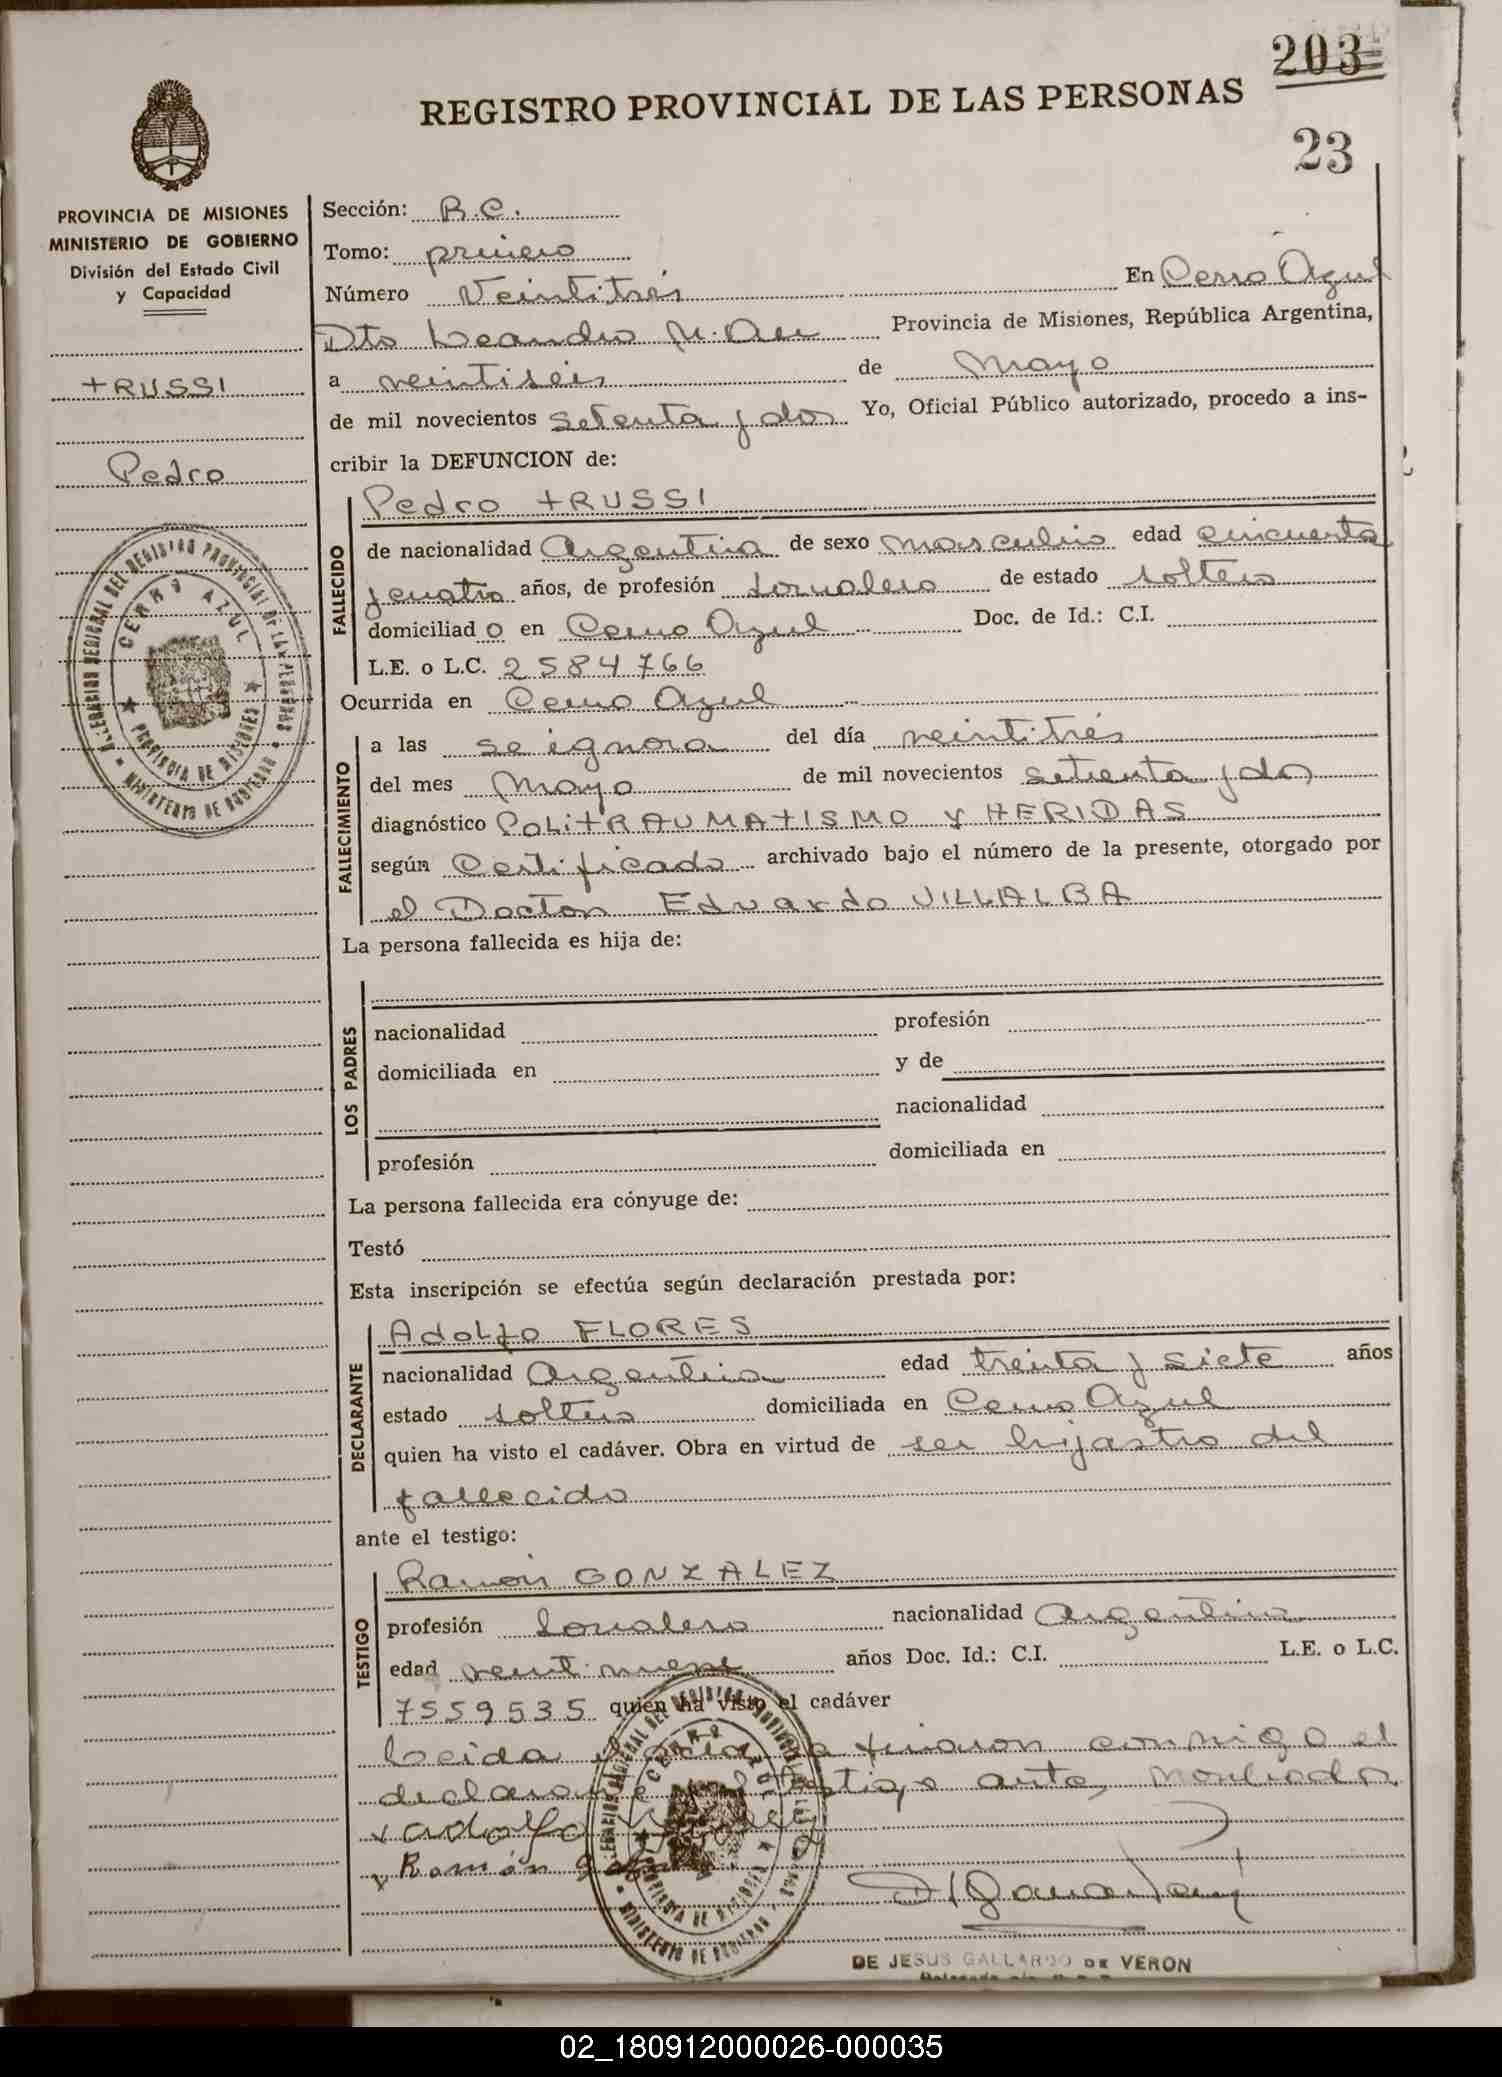 203
REGISTRO PROVINCIAL DE LAS PERSONAS
23
PROVINCIA DE MISIONES
MINISTERIO DE GOBIERNO
División del Estado Civil
y Capacidad
TRUSSI
Pedro
Sección: B.C.
Tomo: primero
Número Veintitrés En Cerro Azul
Dto Leandro N. Provincia de Misiones, República Argentina,
a veintiseis de Mayo
de mil novecientos setenta y dos Yo, Oficial Público autorizado, procedo a ins-
cribir la DEFUNCION de:
FALLECIDO
Pedro TRUSSI
de nacionalidad Argentina de sexo masculino edad cincuenta
y cuatro años, de profesión Jornalero de estado soltero
domiciliado en Cerro Azul Doc. de Id.: C.I.
L.E. o L.C. 2584766
Ocurrida en Cerro Azul
FALLECIMIENTO
a las se ignora del día veintitrés
del mes Mayo de mil novecientos setenta y dos
diagnóstico POLITRAUMATISMO Y HERIDAS
según Certificado archivado bajo el número de la presente, otorgado por
el Doctor Eduardo VILLALBA
La persona fallecida es hija de:
LOS PADRES
nacionalidad profesión
domiciliada en y de
nacionalidad
profesión domiciliada en
La persona fallecida era cónyuge de:
Testó
Esta inscripción se efectúa según declaración prestada por:
DECLARANTE
Adolfo FLORES
nacionalidad Argentina edad treinta y siete años
estado soltero domiciliada en Cerro Azul
quien ha visto el cadáver. Obra en virtud de ser hijastro del
fallecido
ante el testigo:
TESTIGO
Ramón GONZALEZ
profesión Jornalero nacionalidad Argentina
edad veintinueve años Doc. Id.: C.I. L.E. o L.C.
7559535 quien ha visto el cadáver
Leida el acta la firmaron conmigo el
declarante y el testigo ante
Adolfo
Ramón
DELEGACION REGIONAL DEL REGISTRO PROVINCIAL DE LAS PERSONAS
CERRO AZUL
PROVINCIA DE MISIONES
MINISTERIO DE GOBIERNO
DE JESUS GALLARDO DE VERON
02_180912000026-000035